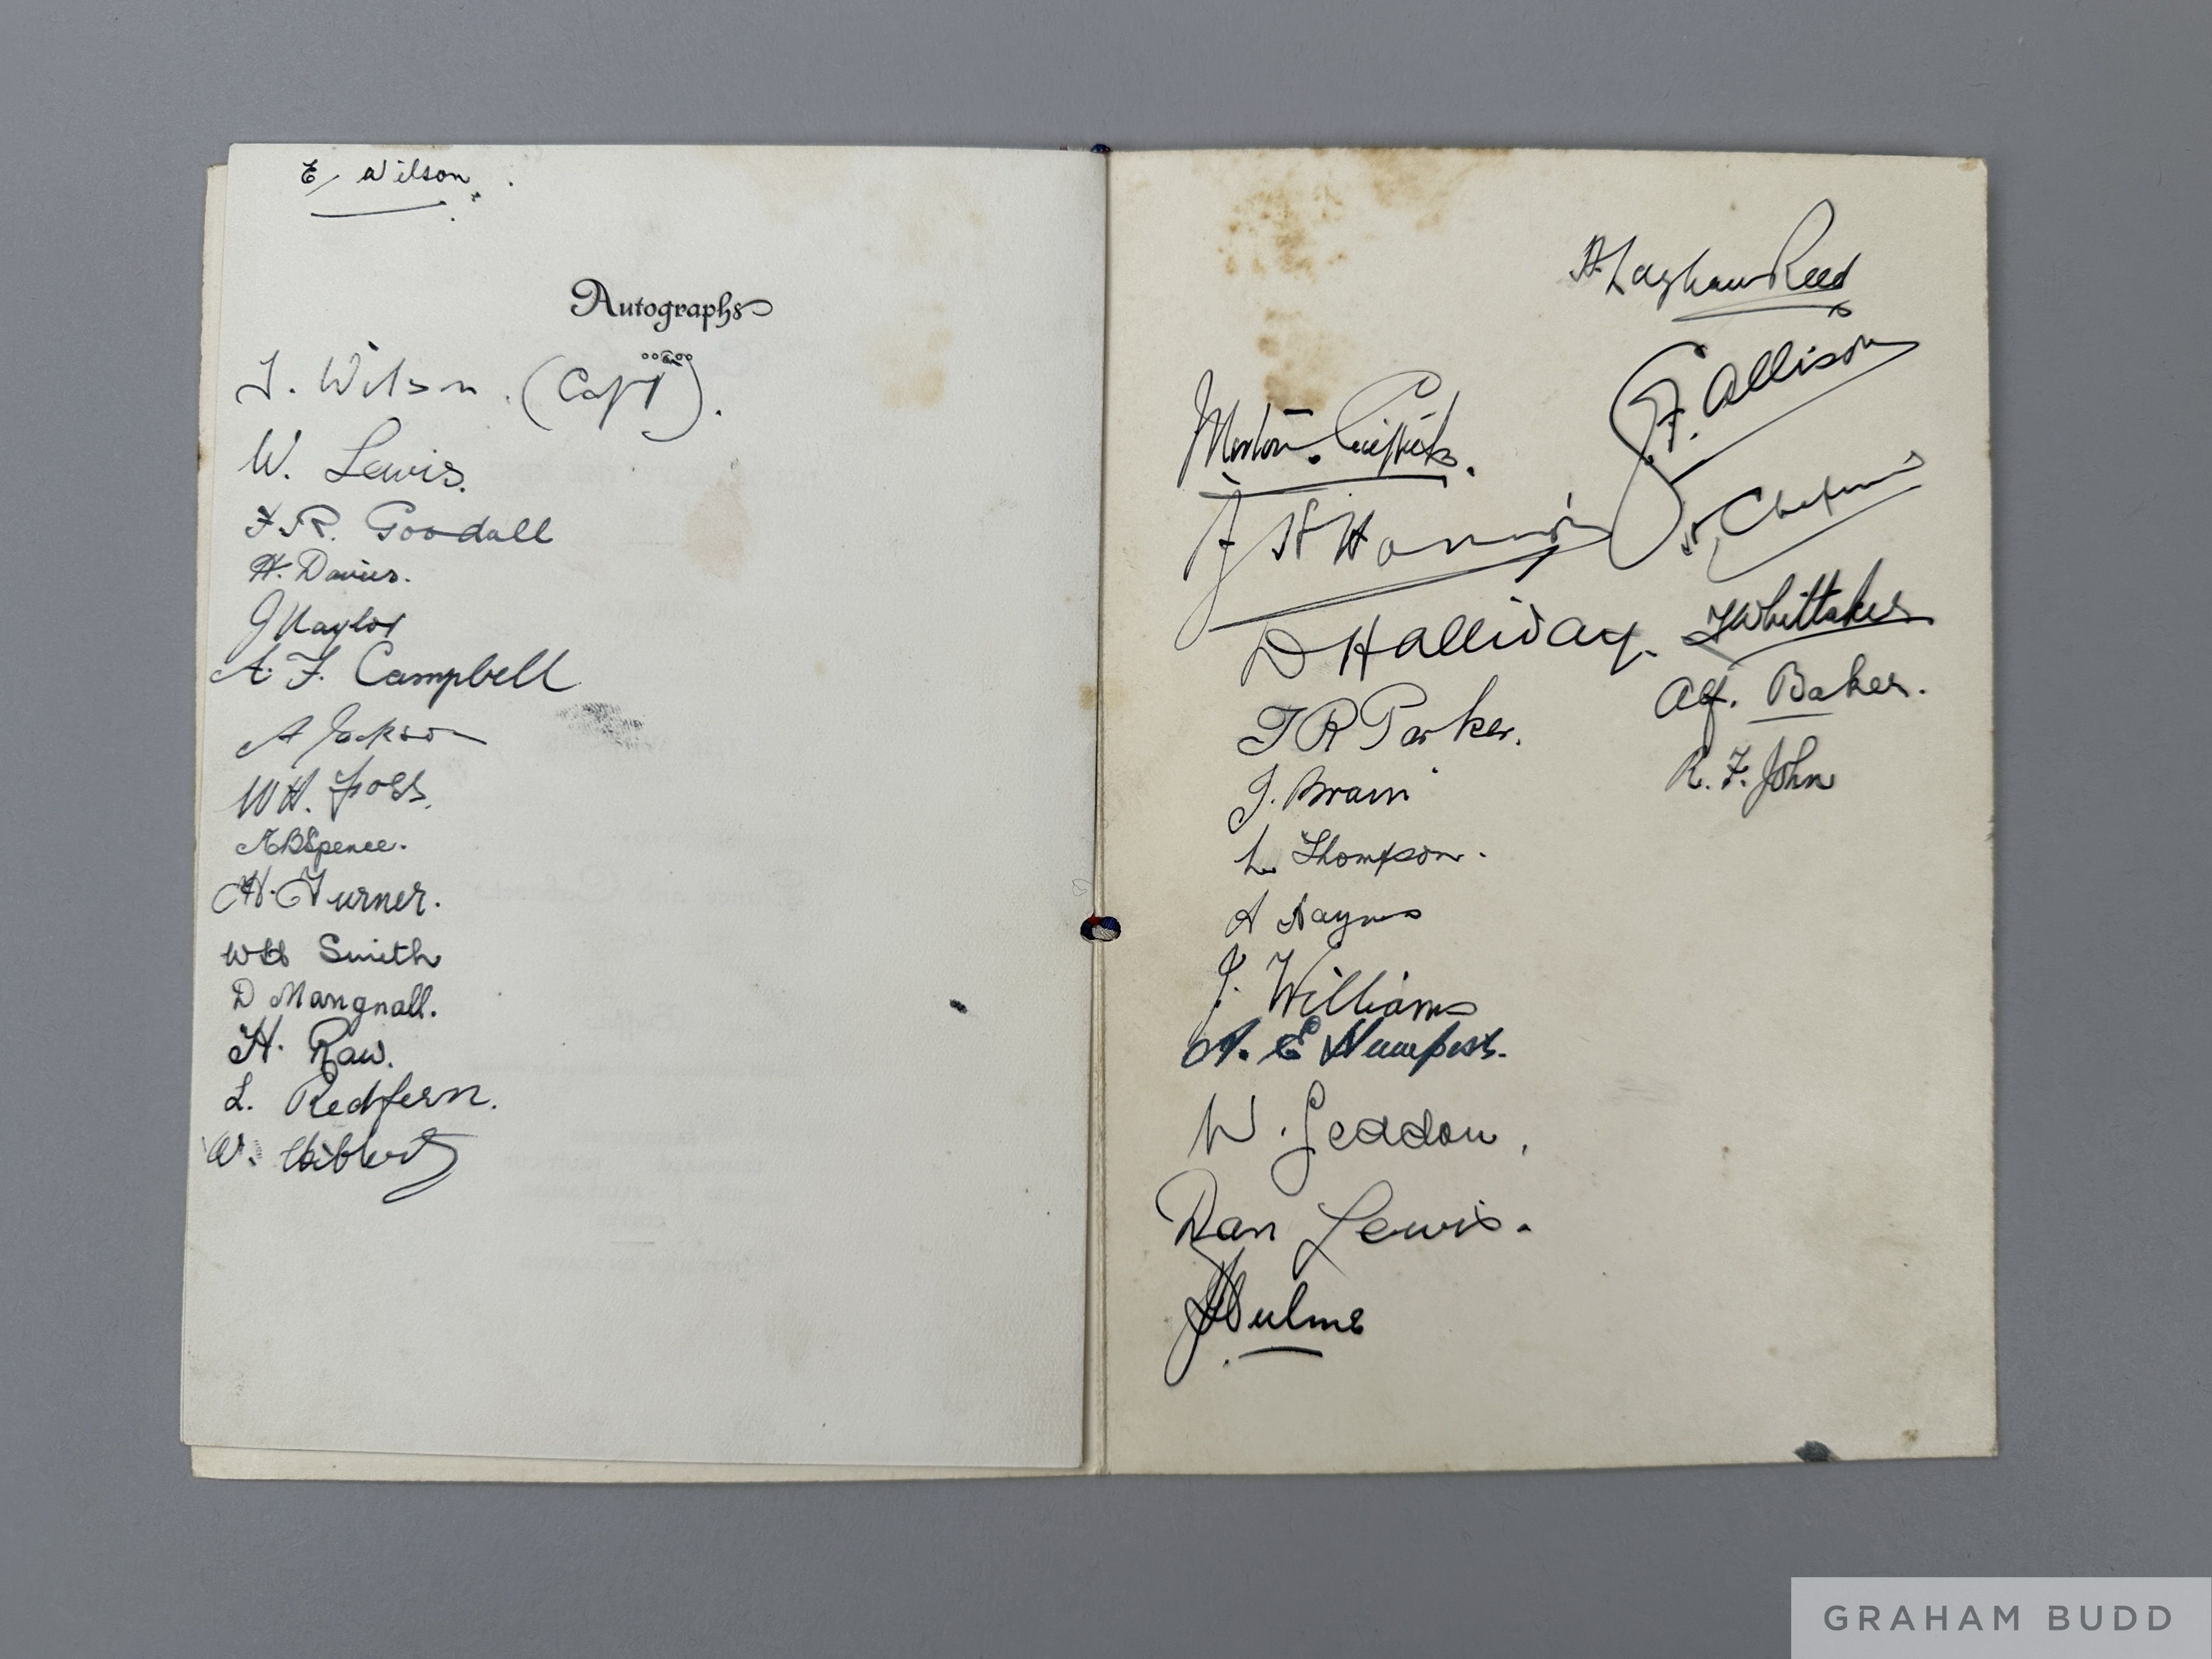 E Wilson.
Autographs
T. Wilson. (Capt).
W. Lewis.
F. R. Goodall
H. Davies.
J Naylor
A. F. Campbell
A Jackson
W H.
A B Spence.
H. Turner.
W H Smith
D Mangnall.
H. Raw.
L. Redfern.
W.
Reed
G. F. Allison
Chapman
D Halliday.
J Whittaker
T R Parker.
Alf. Baker.
R. F. John
J. Brain
L. Thompson.
A Haynes
J. Williams
A. E
W. Seddon.
Dan Lewis.
J Hulme
GRAHAM BUDD